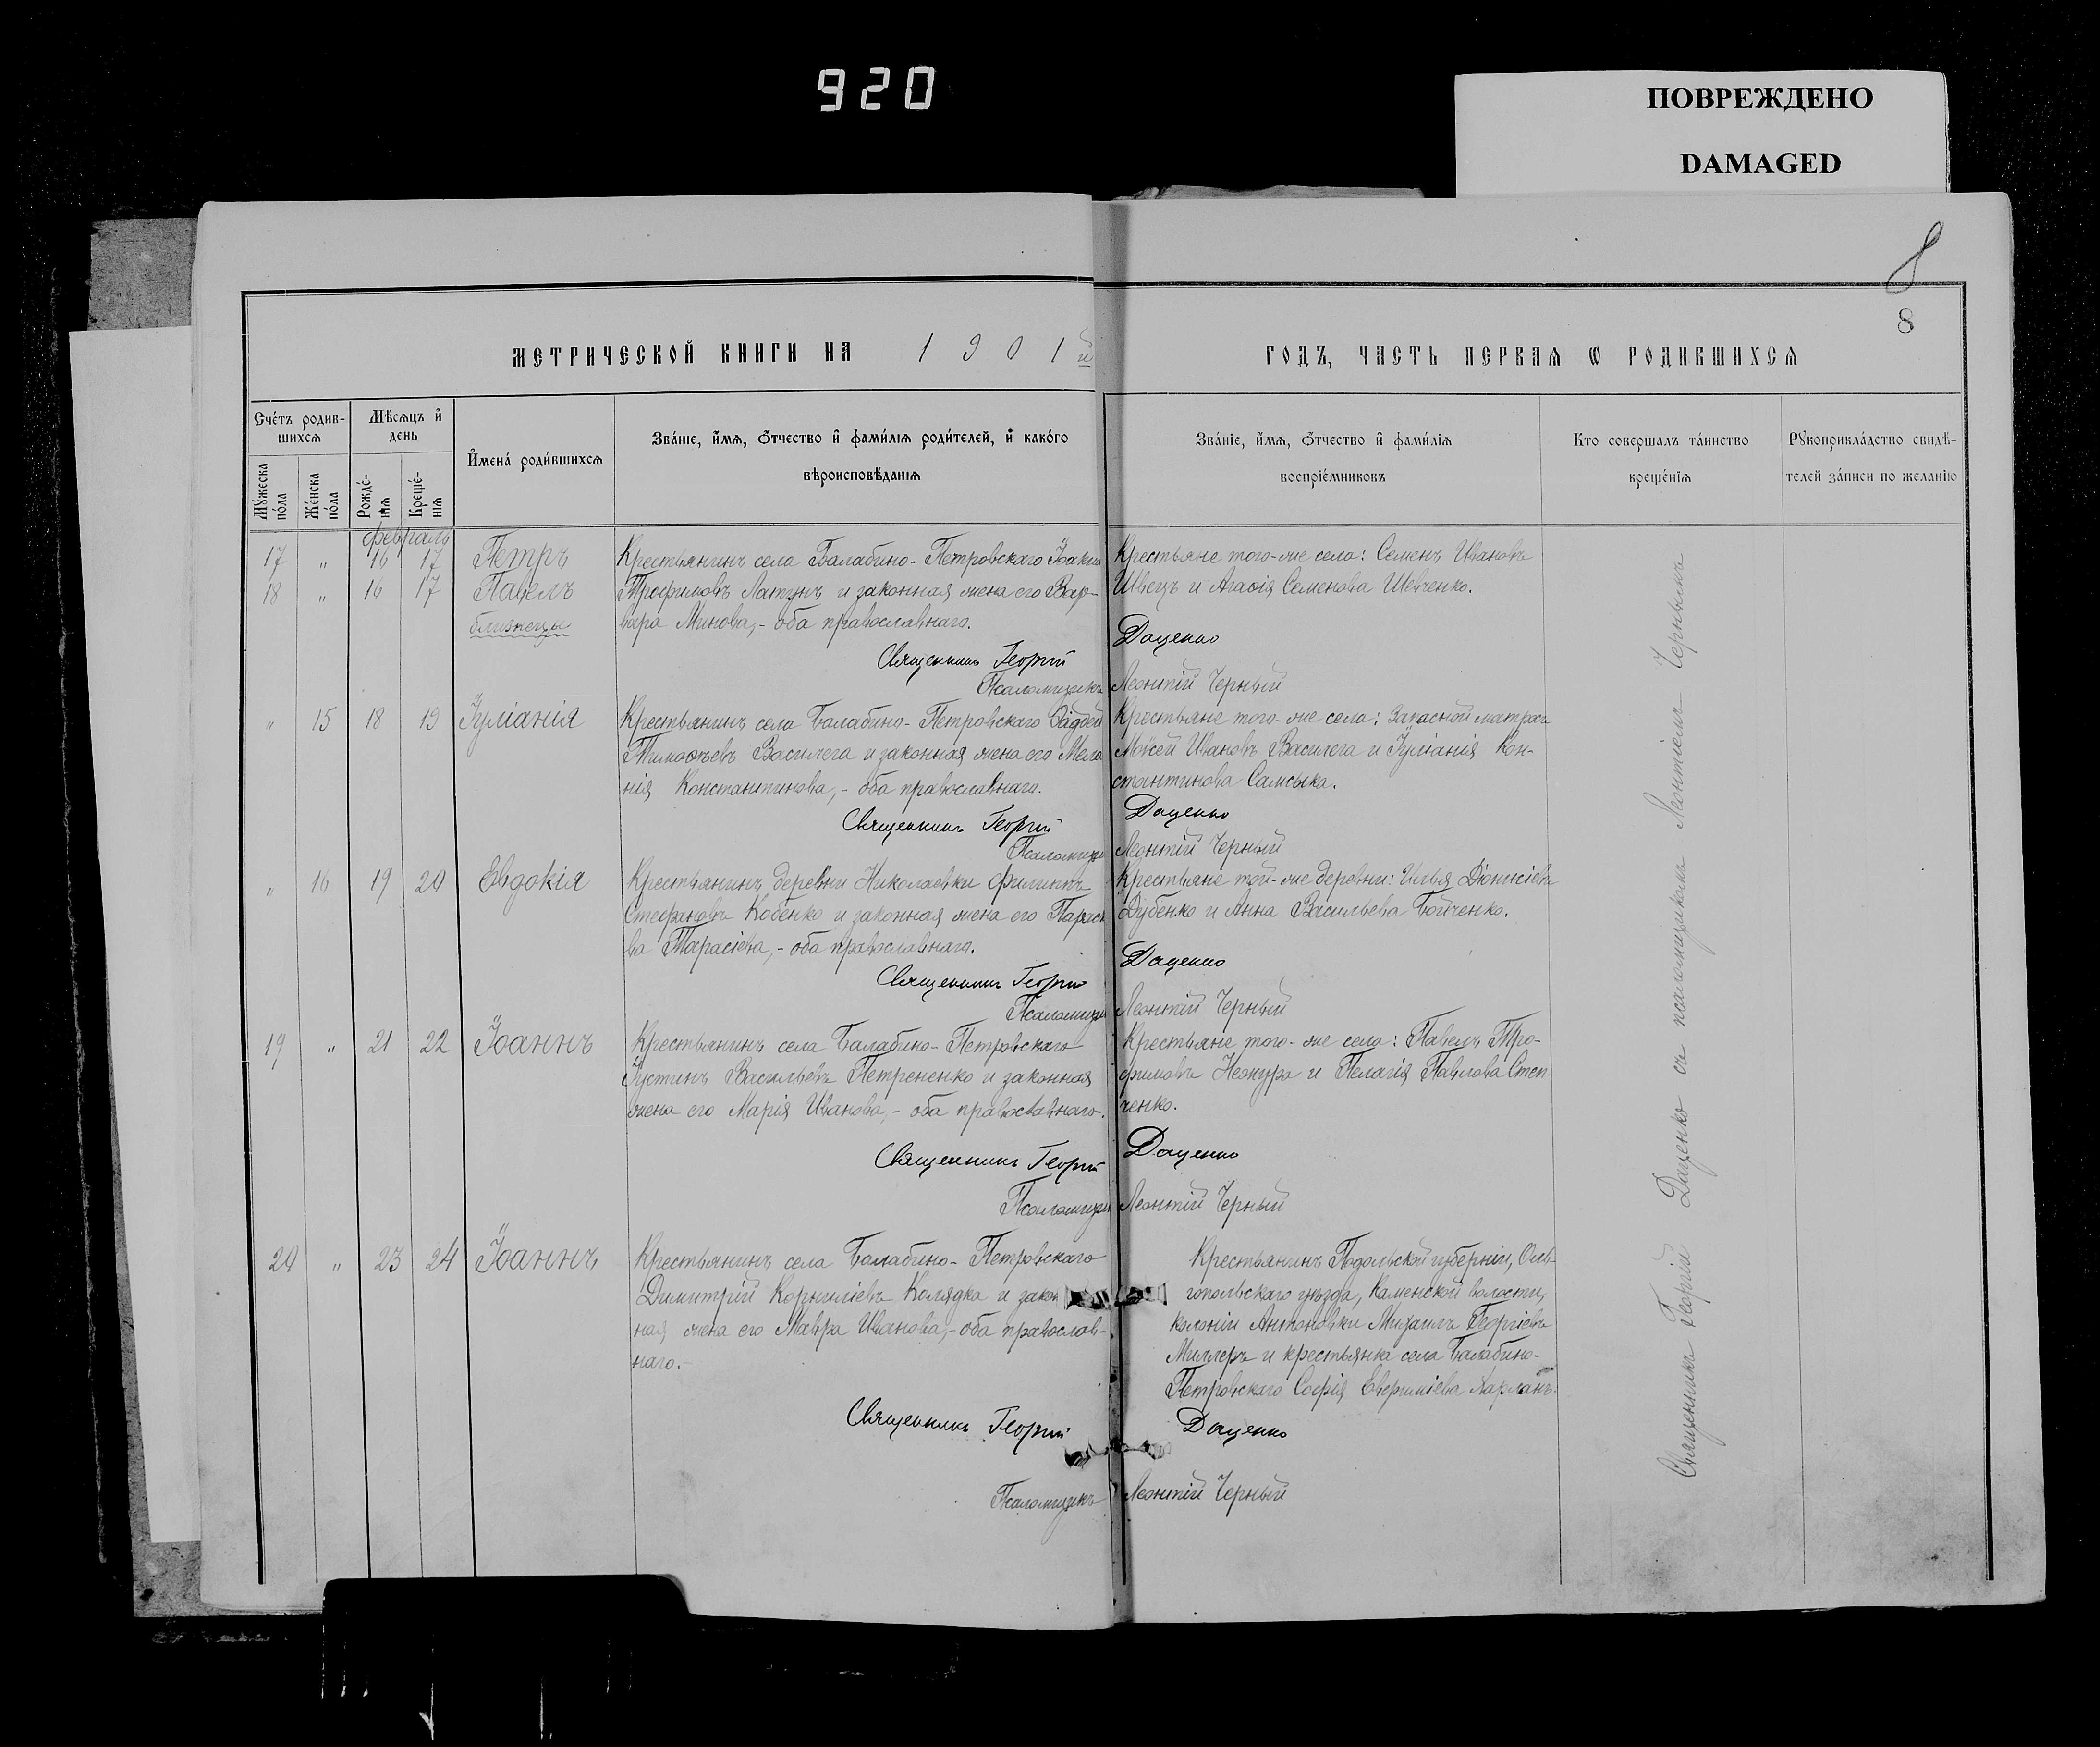 920
ПОВРЕЖДЕНО
DAMAGED
8
8
МЕТРИЧЕСКОЙ КНИГИ НА 1901й ГОДЪ, ЧАСТЬ ПЕРВАЯ Ѡ РОДИВШИХСЯ
Счетъ родив-
шихся
Мужеска пола
Женска пола
Мѣсяцъ и день
Рожде-
нія
Креще-
нія
Имена родившихся
Званіе, имя, отчество и фамилія родителей, и какого
вѣроисповѣданія
Званіе, имя, отчество и фамилія
воспріемниковъ
Кто совершалъ таинство
крещенія
Рукоприкладство свидѣ-
телей записи по желанію
февраль
17 " 16 17 Петръ
18 " 16 17 Павелъ
близнецы
Крестьянинъ села Балабино-Петровскаго Іоаким
Трофимовъ Латунъ и законная жена его Вар-
вара Минова,- оба православнаго.
Крестьяне того-же села: Семенъ Ивановъ
Швецъ и Агаѳія Семенова Шевченко.
Священникъ Георгій Даценко
Псаломщикъ Леонтій Черный
" 15 18 19 Іуліанія
Крестьянинъ села Балабино-Петровскаго Ѳаддей
Тимоѳеевъ Василега и законная жена его Мела
нія Константинова,- оба православнаго.
Крестьяне того-же села: Запасной матросъ
Моѵсей Ивановъ Василега и Іуліанія Кон-
стантинова Самсыка.
Священникъ Георгій Даценко
Псаломщи Леонтій Черный
" 16 19 20 Евдокія
Крестьянинъ деревни Николаевки Филиппъ
Стефановъ Кобенко и законная жена его Параск
ва Тарасіева,- оба православнаго.
Крестьяне той-же деревни: Илья Діонисіевъ
Дубенко и Анна Васильева Бойченко.
Священникъ Георгій Даценко
Псаломщи Леонтій Черный
19 " 21 22 Іоаннъ
Крестьянинъ села Балабино-Петровскаго
Іустинъ Васильевъ Петрененко и законная
жена его Марія Иванова,- оба православнаго.
Крестьяне того-же села: Павелъ Тро-
фимовъ и Пелагія Павлова Степ-
ченко.
Священникъ Георгій Даценко
Псаломщи Леонтій Черный
20 " 23 24 Іоаннъ
Крестьянинъ села Балабино-Петровскаго
Димитрій Корниліевъ Колядка и закон
ная жена его Мавра Иванова,- оба православ-
наго.-
Крестьянинъ Подольской губерніи, Оль-
гопольскаго уѣзда, Каменской волости,
колоніи Антоновки Михаилъ Георгіевъ
Миллеръ и крестьянка села Балабино-
Петровскаго Софія Евфиміева Харланъ.
Священникъ Георгій Даценко
Псаломщикъ Леонтій Черный
Священникъ Георгій Даценко съ псаломщикомъ Леонтіемъ Чернымъ